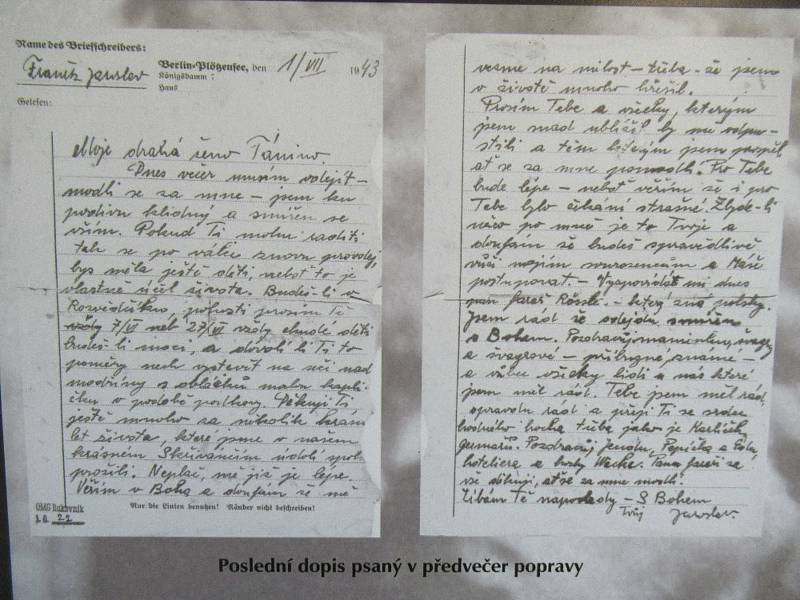 Name des Briefschreibers:
Berlin-Plötzensee, den 1/VII 1943
Königsdamm 7
Haus
Frantz Jaroslav
Gelesen:
Moje drahá ženo Tánino.
Dnes večer musím odejít –
modli se za mne – jsem ku
podivu klidný a smířen se
vším. Pokud Ti mohu raditi
tak se po válce znovu provdej,
bys měla ještě děti, nebot to je
vlastně účel života. Budeš-li v
prosím Tě
vždy 7/VI neb 27/VI vždy chudé děti
budeš-li moci, a dovolí-li Ti to
poměry nech vystavit na
z oblázků malou kapli-
čku v podobě podkovy. Děkuji Ti
ještě mnoho za několik krás
let života, které jsme v našem
krásném údolí spolu
prožili. Neplač, mě již je lépe.
Věřím v Boha a doufám že mě
OMG Rakovník
Nur die Linien benutzen! Ränder nicht beschreiben!
vezme na milost – třeba – že jsem
v životě mnoho hřešil.
Prosím Tebe a všecky, kterým
jsem snad ublížil by mi odpu-
stili a těm kterým jsem prospěl
ať se za mne pomodlí. Pro Tebe
bude lépe – neboť věřím že i pro
Tebe bylo čekání strašné. Zbyde-li
něco po mně je to Tvoje a
doufám že budeš spravedlivě
vůči mojím sourozencům a
postupovat. – Vyzpovídal mi dnes
pan farář – který zná polsky.
Jsem rád že odejdu smířen
s Bohem. Pozdravuj maminku,
a švagrové – příbuzné, známé –
a vůbec všecky lidi u nás které
jsem měl rád. Tebe jsem měl rád
opravdu rád a přeji Ti ze srdce
hodného hocha třeba jako je Karlíček
Pozdravuj Jendu, Pepíčka a
hoteliera a Panu faráři se
vše děkuji, ať se za mne modlí.
Líbám Tě naposledy – S Bohem
Tvůj Jaroslav.
Poslední dopis psaný v předvečer popravy